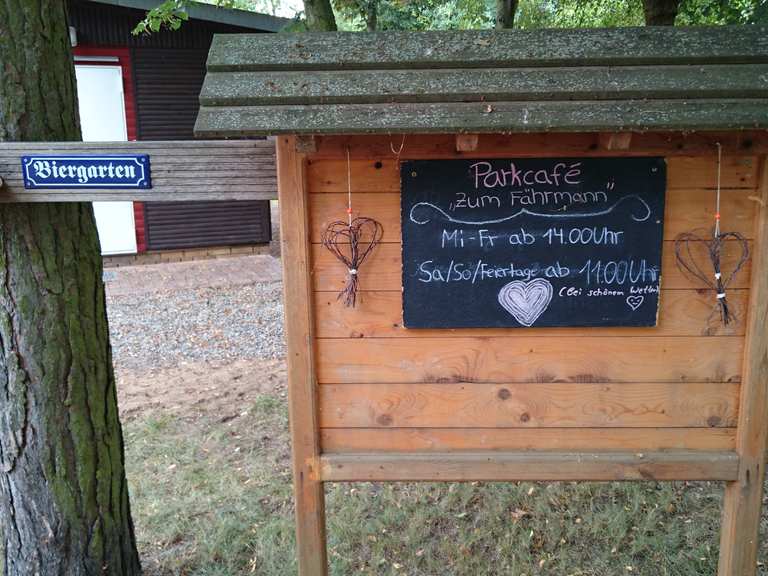 Biergarten
Parkcafé
"Zum Fährmann"
Mi-Fr ab 14.00Uhr
Sa/So/Feiertage ab 11.00Uhr
(Bei schönem Wetter)